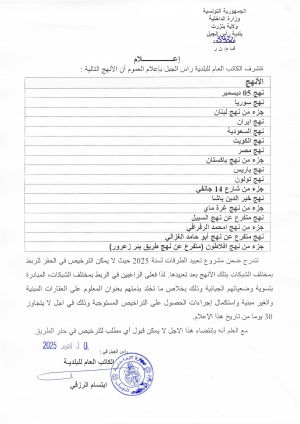 الجمهورية التونسية
وزارة الداخلية
ولاية بنزرت
بلدية رأس الجبل
إعــــــلام
تتشرف الكاتب العام للبلدية رأس الجبل بإعلام العموم أن الأنهج التالية :
الأنهج
نهج 05 ديسمبر
نهج سوريا
جزء من نهج لبنان
نهج ايران
نهج السعودية
نهج الكويت
نهج مصر
جزء من نهج باكستان
نهج باريس
نهج تولون
جزء من شارع 14 جانفي
نهج خير الدين باشا
جزء من نهج غرة ماي
نهج متفرع عن نهج السبيل
جزء من نهج امحمد الرقرافي
نهج متفرع عن نهج أبو حامد الغزالي
جزء من نهج افلاطون (متفرع عن نهج طريق بئر زعرور)
تندرج ضمن مشروع تعبيد الطرقات لسنة 2025 حيث لا يمكن الترخيص في الحفر للربط
بمختلف الشبكات بتلك الأنهج بعد تعبيدها. لذا فعلى الراغبين في الربط بمختلف الشبكات، المبادرة
بتسوية وضعياتهم الجبائية وذلك بخلاص ما تخلد بذمتهم بعنوان المعلوم على العقارات المبنية
والغير مبنية واستكمال إجراءات الحصول على التراخيص المستوجبة وذلك في اجل لا يتجاوز
30 يوما من تاريخ هذا الإعلام.
مع العلم أنه بإنقضاء هذا الاجل لا يمكن قبول أي مطلب للترخيص في حفر الطريق.
رأس الجبل في :
أكتوبر 2025
الكاتب العام للبلدية
ابتسام الرزقي